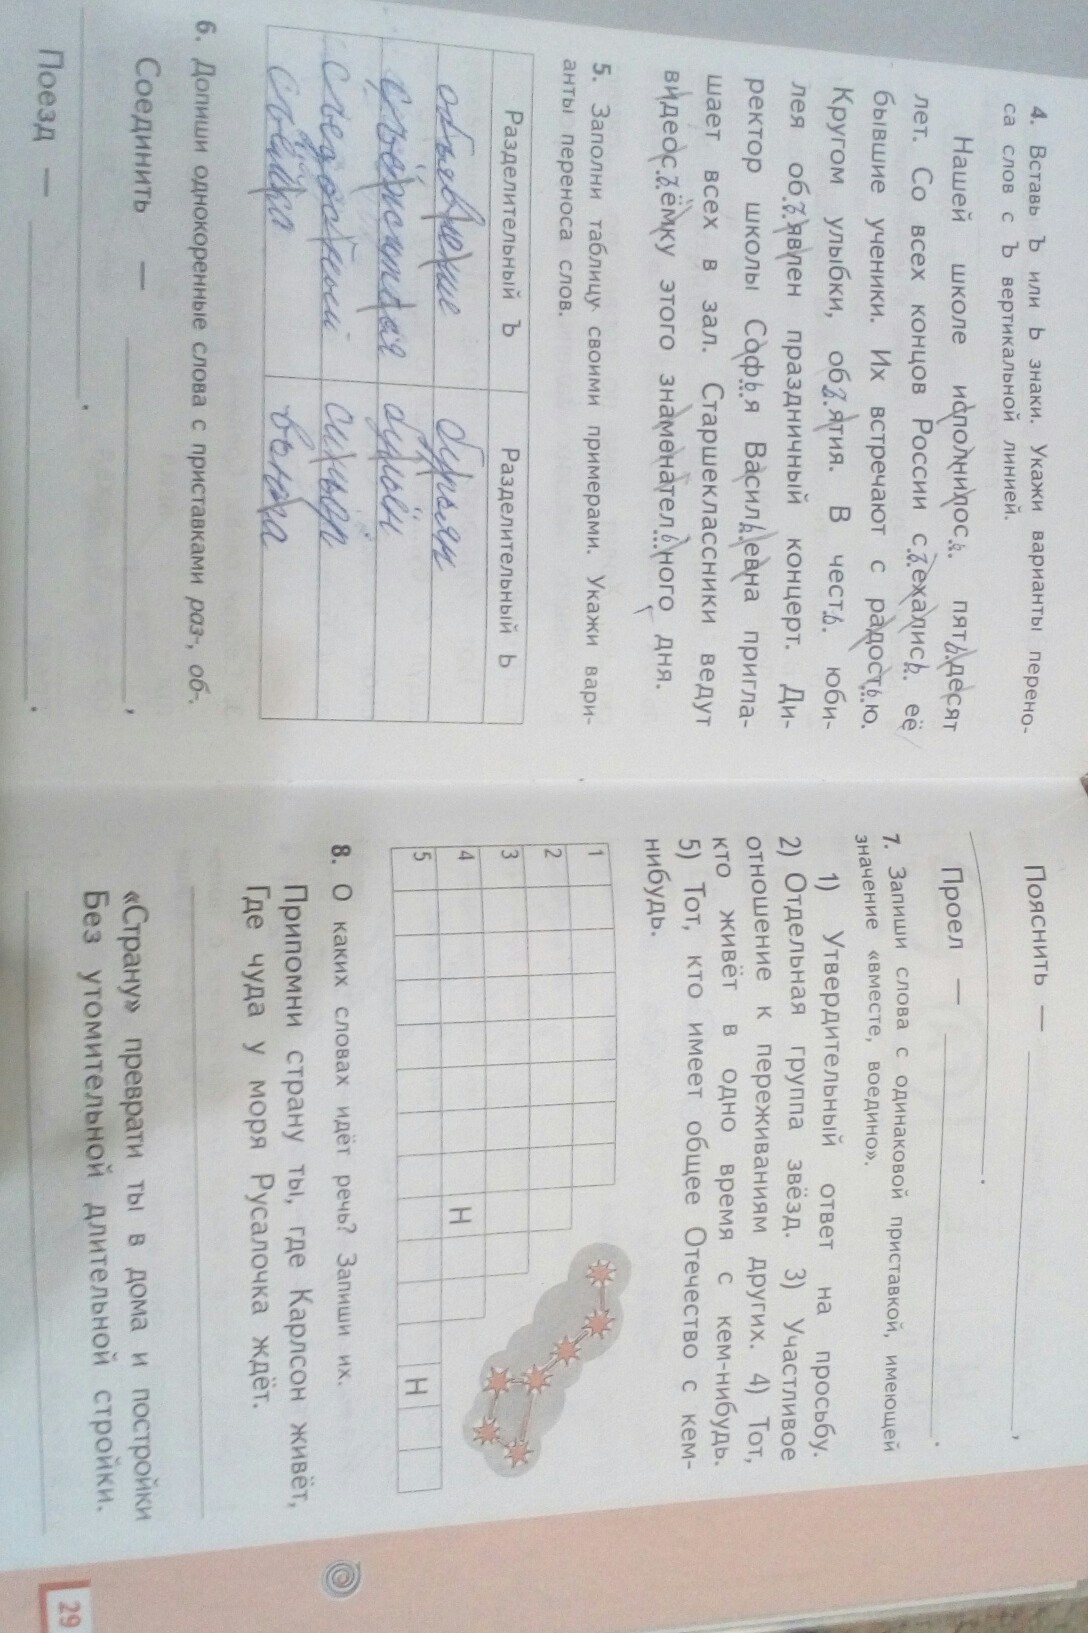 4. Вставь Ъ или Ь знаки. Укажи варианты перено-
са слов с Ъ вертикальной линией.
Нашей школе исполнилось пятьдесят
лет. Со всех концов России съехались её
бывшие ученики. Их встречают с радостью.
Кругом улыбки, объятия. В честь юби-
лея объявлен праздничный концерт. Ди-
ректор школы Софья Васильевна пригла-
шает всех в зал. Старшеклассники ведут
видеосъёмку этого знаменательного дня.
5. Заполни таблицу своими примерами. Укажи вари-
анты переноса слов.
Разделительный Ъ Разделительный Ь
объявление бурьян
бульон
съедобный
съёмка вьюга
6. Допиши однокоренные слова с приставками раз-, об-.
Соединить — ,
.
Поезд — .
Пояснить — ,
.
Проел — .
7. Запиши слова с одинаковой приставкой, имеющей
значение «вместе, воедино».
1) Утвердительный ответ на просьбу.
2) Отдельная группа звёзд. 3) Участливое
отношение к переживаниям других. 4) Тот,
кто живёт в одно время с кем-нибудь.
5) Тот, кто имеет общее Отечество с кем-
нибудь.
1
2
3
4 Н
5 Н
8. О каких словах идёт речь? Запиши их.
Припомни страну ты, где Карлсон живёт,
Где чуда у моря Русалочка ждёт.
«Страну» преврати ты в дома и постройки
Без утомительной длительной стройки.
29